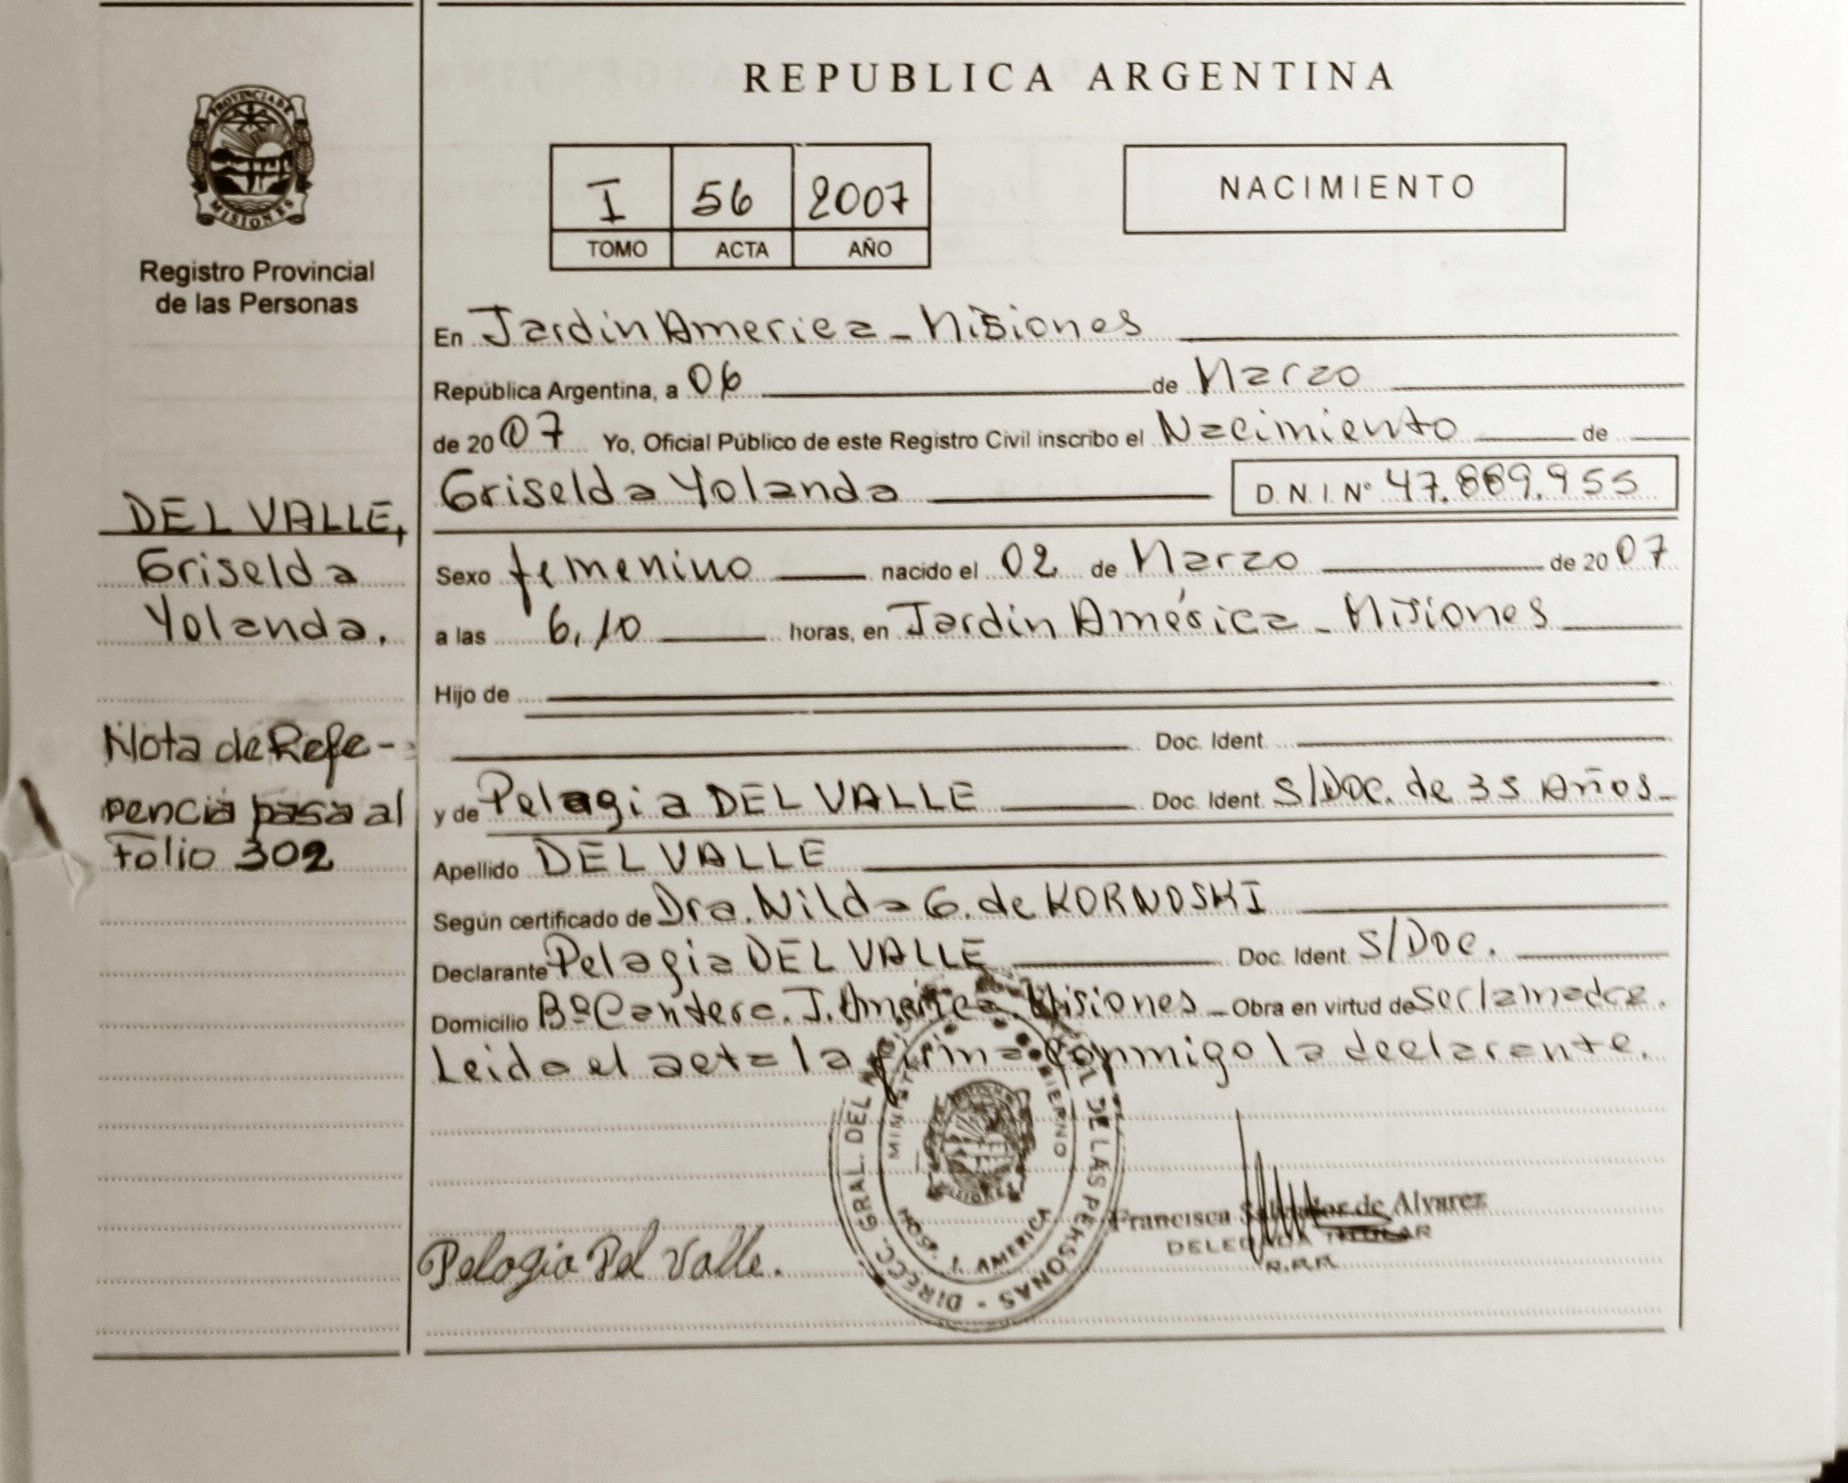 REPUBLICA ARGENTINA
PROVINCIA DE
MISIONES
Registro Provincial
de las Personas
I 56 2007
TOMO ACTA AÑO
NACIMIENTO
En Jardin America - Misiones
República Argentina, a 06 de Marzo
de 2007 Yo, Oficial Público de este Registro Civil inscribo el Nacimiento de
Griselda Yolanda D.N.I. Nº 47.889.955
DEL VALLE,
Griselda
Yolanda.
Sexo femenino nacido el 02 de Marzo de 2007
a las 6,10 horas, en Jardin América - Misiones
Hijo de
Doc. Ident.
Nota de Refe-
rencia pasa al
Folio 302
y de Pelagia DEL VALLE Doc. Ident. S/Doc. de 35 Años-
Apellido DEL VALLE
Según certificado de Dra. Nilda G. de KORNOSKI
Declarante Pelagia DEL VALLE Doc. Ident. S/Doc.
Domicilio Bº Cantera. J. América. Misiones - Obra en virtud de ser la madre.
Leida el acta la firma conmigo la declarante.
DIRECC. GRAL. DEL DE LAS PERSONAS
HOSP. J. AMERICA
Pelagia Del Valle.
Francisca Salvador de Alvarez
DELEGADA TITULAR
R.P.P.